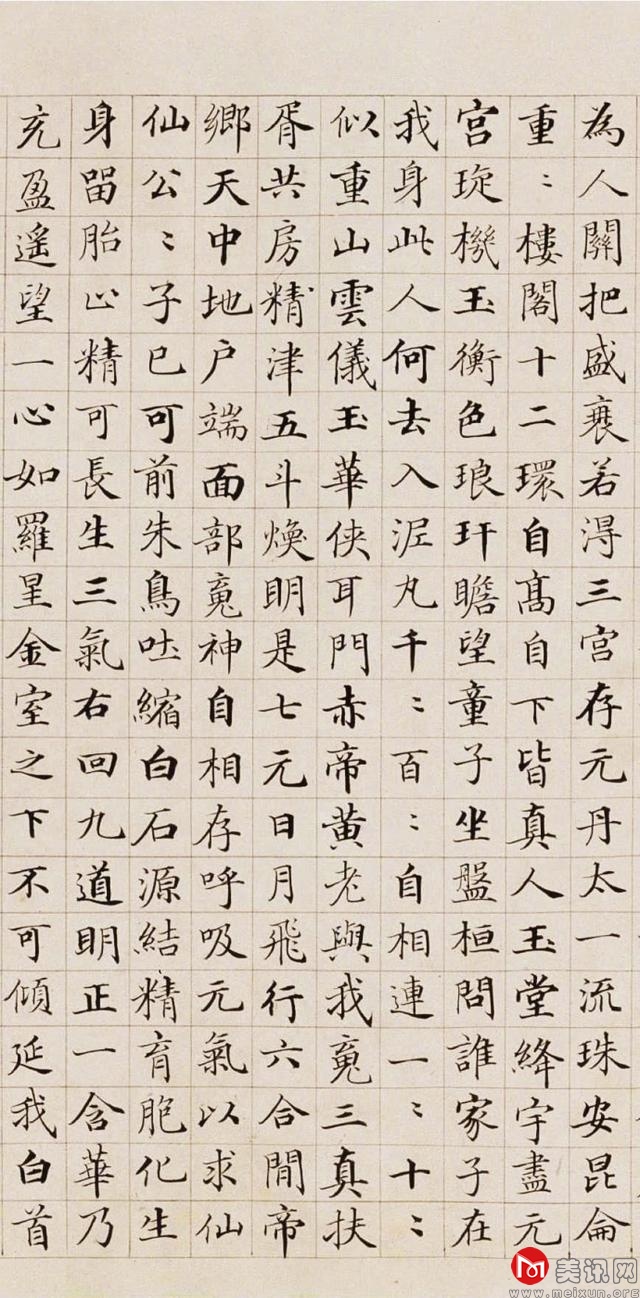 為人關把盛衰若淂三宫存元丹太一流珠安昆侖
重〻樓閣十二環自髙自下皆真人玉堂絳宇盡元
宫琁機玉衡色琅玕瞻望童子坐盤桓問誰家子在
我身此人何去入泥丸千〻百〻自相連一〻十〻
似重山雲儀玉華俠耳門赤帝黄老與我䰟三真扶
胥共房精津五斗煥明是七元日月飛行六合間帝
鄉天中地户端面部䰟神自相存呼吸元氣以求仙
仙公〻子已可前朱鳥吐縮白石源結精育胞化生
身留胎止精可長生三氣右回九道明正一含華乃
充盈遥望一心如羅星金室之下不可傾延我白首
美讯网
www.meixun.org